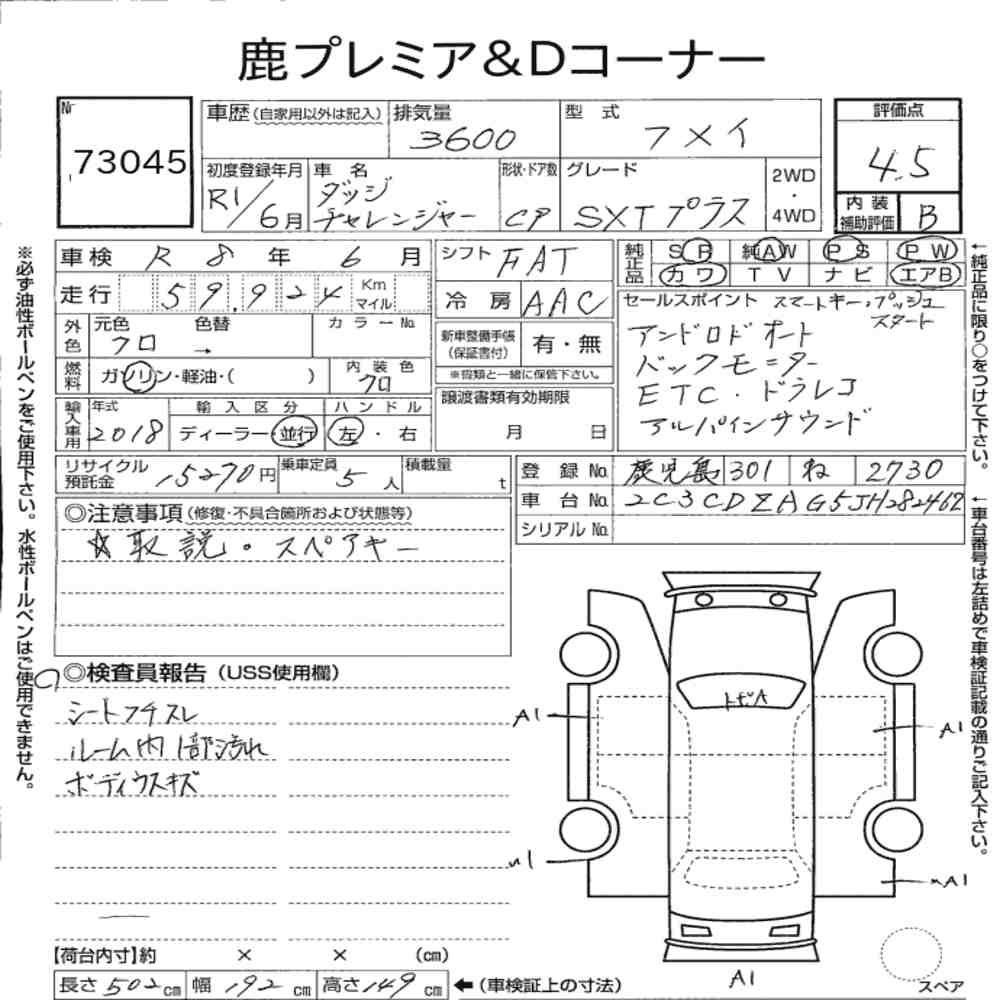 鹿プレミア&Dコーナー
No 73045
車歴(自家用以外は記入) 排気量 3600 型式 フメイ 評価点 4.5
初度登録年月 R1/6月 車名 ダッジ チャレンジャー 形状・ドア数 CP グレード SXTプラス 2WD・4WD 内装補助評価 B
車検 R8年6月 シフト FAT 純正品 SR 純AW PS PW
カワ TV ナビ エアB
走行 59,924 Km マイル 冷房 AAC セールスポイント スマートキー・プッシュスタート
外色 元色 クロ 色替 → カラーNo. 新車整備手帳(保証書付) 有・無 アンドロドオート
※書類と一緒に保管下さい。 バックモニター
燃料 ガソリン・軽油・( ) 内装色 クロ 譲渡書類有効期限 月 日 ETC・ドラレコ
輸入車用 年式 2018 輸入区分 ディーラー・並行 ハンドル 左・右 アルパインサウンド
リサイクル預託金 15270円 乗車定員 5人 積載量 t 登録No. 鹿児島 301 ね 2730
車台No. 2C3CDZAG5JH282462
シリアルNo.
◎注意事項(修復・不具合箇所および状態等)
☆取説・スペアキー
◎検査員報告(USS使用欄)
シートフチスレ
ルーム内1部汚れ
ボディウスキズ
トビA
A1
A1
A1
A1
スペア
【荷台内寸】約 × × (cm)
長さ502cm 幅192cm 高さ149cm ←(車検証上の寸法)
※必ず油性ボールペンをご使用下さい。水性ボールペンはご使用できません。
←純正品に限り○をつけて下さい。
←車台番号は左詰めで車検証記載の通りご記入下さい。